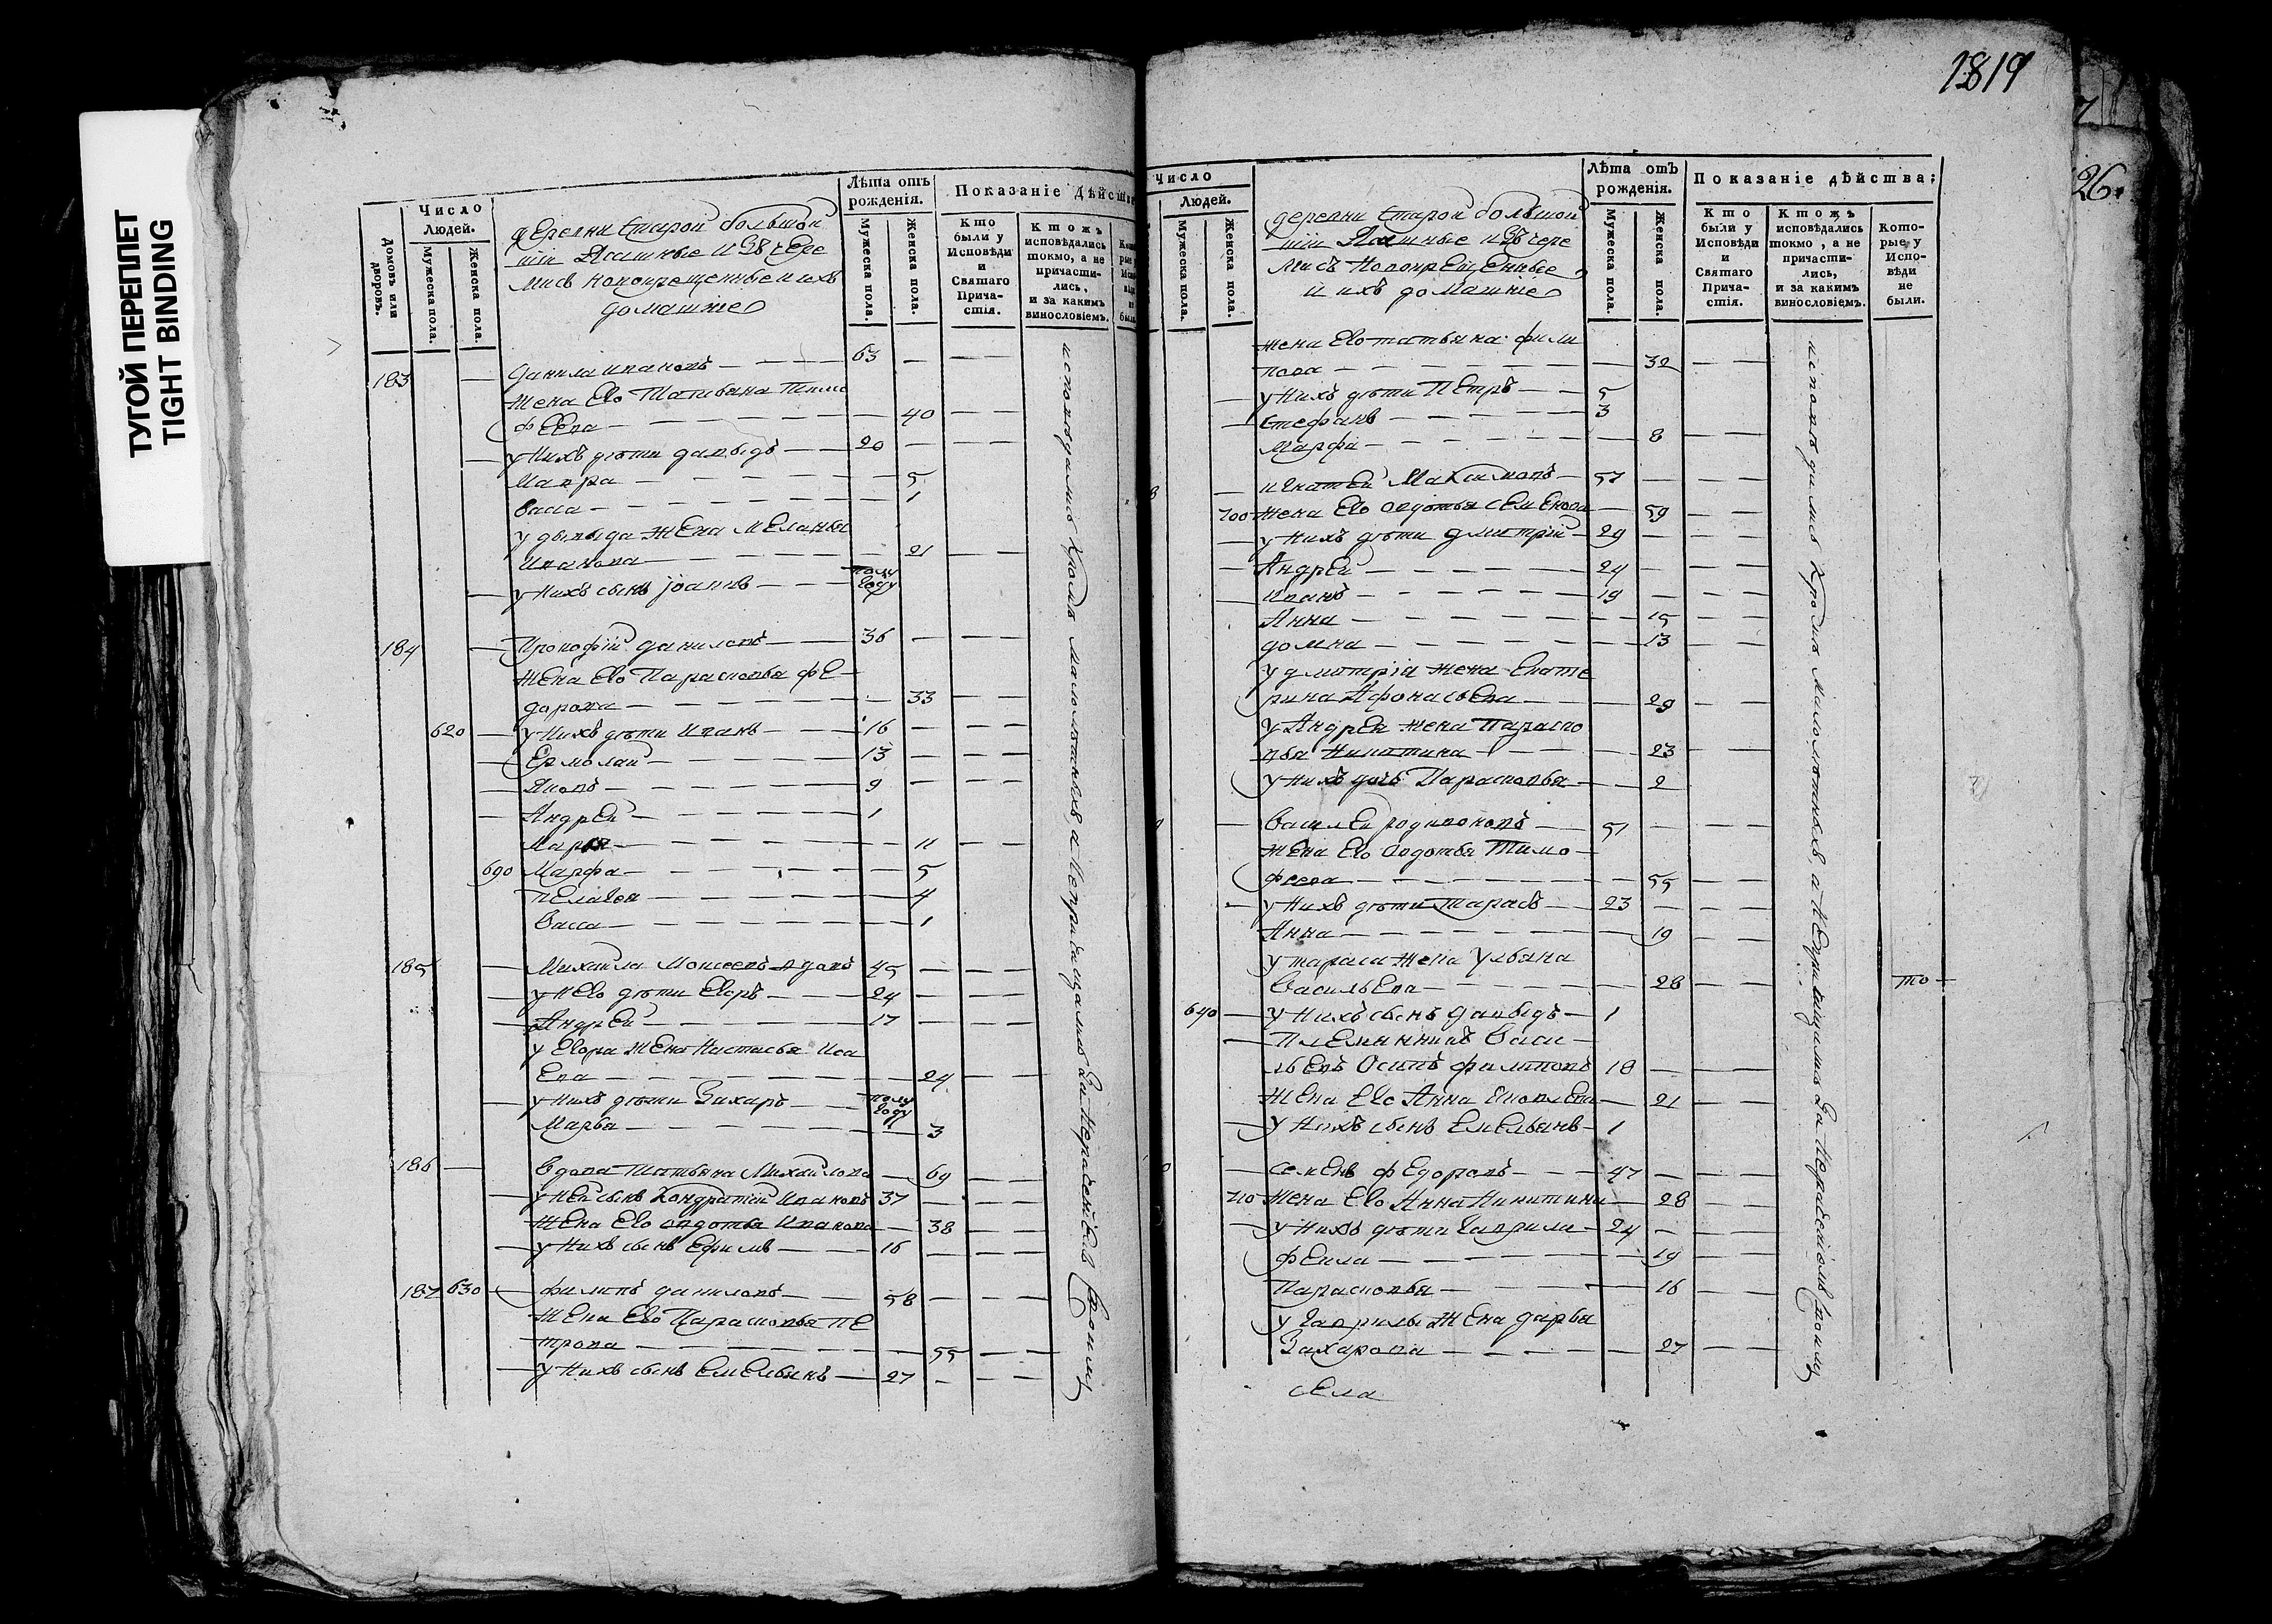 ТУГОЙ ПЕРЕПЛЕТ
TIGHT BINDING
1819
26.
Домовъ или дворовъ.
Число Людей.
Мужеска пола.
Женска пола.
деревни Старой большой
шiи Ясашные изъ чере
мисъ новокрещенные и ихъ
домашнiе
Лѣта отъ рожденiя.
Мужеска пола.
Женска пола.
Показанiе дѣйства
Кто были у Исповѣди и Святаго Прича-стiя.
Ктожъ исповѣдались токмо, а не причасти-лись, и за какимъ винословiемъ.
183 — Данила Ивановъ — 63 —
жена Ево Татьяна Тимо
феева — 40
— у нихъ дѣти давыдъ — 20 —
Мавра — 5
Васса — 1
у давыда жена Меланья
Иванова — 21
— у нихъ сынъ Iоаннъ — полу году
184 — Прокофiй даниловъ — 36 —
жена Ево Парасковья фе-
дорова — 33
620 — у нихъ дѣти Иванъ — 16 —
— Ермолай — 13 —
— Яковъ — 9 —
— Андрей — 1
Марья — 11
690 Марфа — 5
Пелагея — 4
Васса — 1
185 — Михаила Моисеевъ вдовъ 45 —
— у нево дѣти Егоръ — 24 —
— Андрей — 17 —
у Егора жена Настасья Иса
Ева — 24
— у нихъ дѣти Захаръ — полу году
Марья — 3
186 — вдова Татьяна Михайлова — 69
— у ней сынъ Кондратiй Ивановъ 37 —
жена Ево Авдотья Иванова — 38
— у нихъ сынъ Ефимъ — 16 —
187 630 — филипъ даниловъ — 58 —
жена Ево Парасковья Пе
трова — 55
— у нихъ сынъ Емельянъ — 27 —
исповѣдались кромѣ малолѣтныхъ, а непричащались за нерасѣянiемъ
Число
Людей.
Мужеска пола.
Женска пола.
деревни Старой большой
шiи Ясашные изъ чере
мисъ Новокрещенные
и ихъ домашнiе
Лѣта отъ рожденiя.
Мужеска пола.
Женска пола.
Показанiе дѣйства:
Кто были у Исповѣди и Святаго Прича-стiя.
Ктожъ исповѣдались токмо, а не причасти-лись, и за какимъ винословiемъ.
Кото-рые у Испо-вѣди не были.
жена Ево татьяна фили
пова — 32
— у нихъ дѣти Петръ — 5
— Стефанъ — 3
Марфа — 8
— игнатей Максимовъ — 57 —
700 жена Ево Авдотья Семенова — 59
— у нихъ дѣти дмитрiй — 29 —
— Андрей — 24 —
— Иванъ — 19 —
Анна — 15
домна — 13
у дмитрiя жена Екате
рина Афонасьева — 29
у Андрея жена Параско
вья Никитина — 23
у нихъ дочь Парасковья — 2
— Василей родионовъ — 51 —
жена Ево Авдотья Тимо-
феева — 55
— у нихъ дѣти тарасъ — 23 —
Анна — 19
у тараса жена Ульяна
Васильева — 28
то
640 — у нихъ сынъ давыдъ — 1
— Племянникъ Васи-
льевъ Осипъ филиповъ 18 —
жена Ево Анна Яковлева — 21
— у нихъ сынъ Емельянъ — 1
— семенъ федоровъ — 47 —
710 жена Ево Анна Никитина — 28
— у нихъ дѣти Гаврила — 24 —
фекла — 19
Парасковья — 16
у гаврилы жена дарья
Захарова — 27
исповѣдались кромѣ малолѣтныхъ, а непричащались за нерасѣянiемъ
села